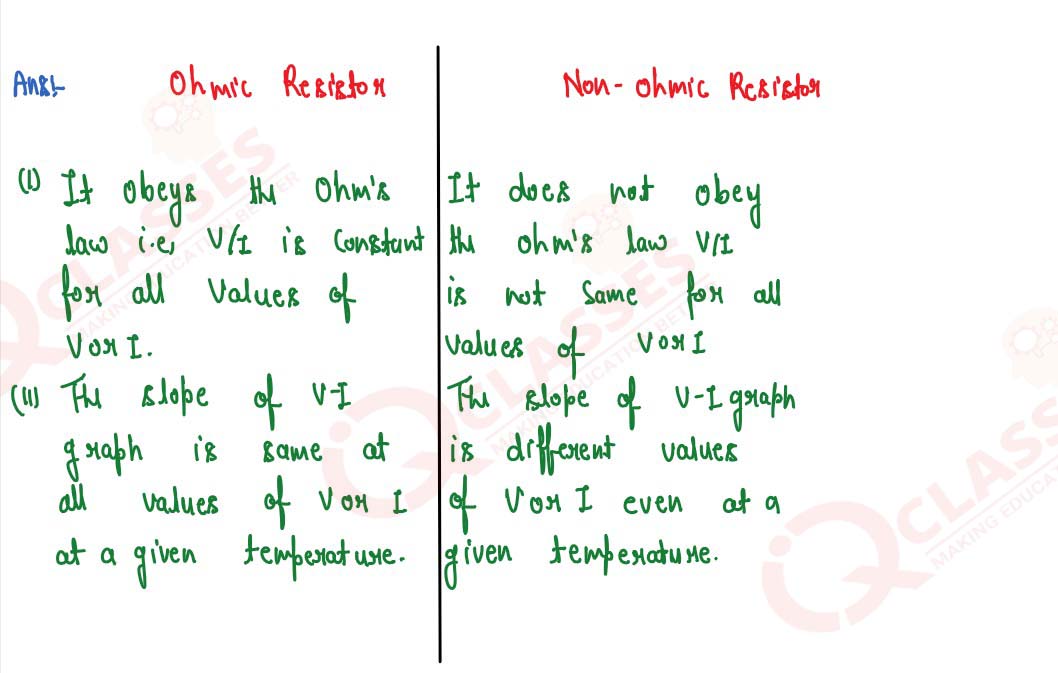 Ans:-
Ohmic Resistor
Non-ohmic Resistor
(I) It obeys the Ohm's
law i.e, V/I is Constant
for all Values of
V or I.
(II) The slope of V-I
graph is same at
all values of V or I
at a given temperature.
It does not obey
the ohm's law V/I
is not Same for all
values of V or I
The slope of V-I graph
is different values
of V or I even at a
given temperature.
IQ CLASSES
MAKING EDUCATION BETTER
IQ CLASSES
MAKING EDUCATION BETTER
IQ CLASSES
MAKING EDUCA